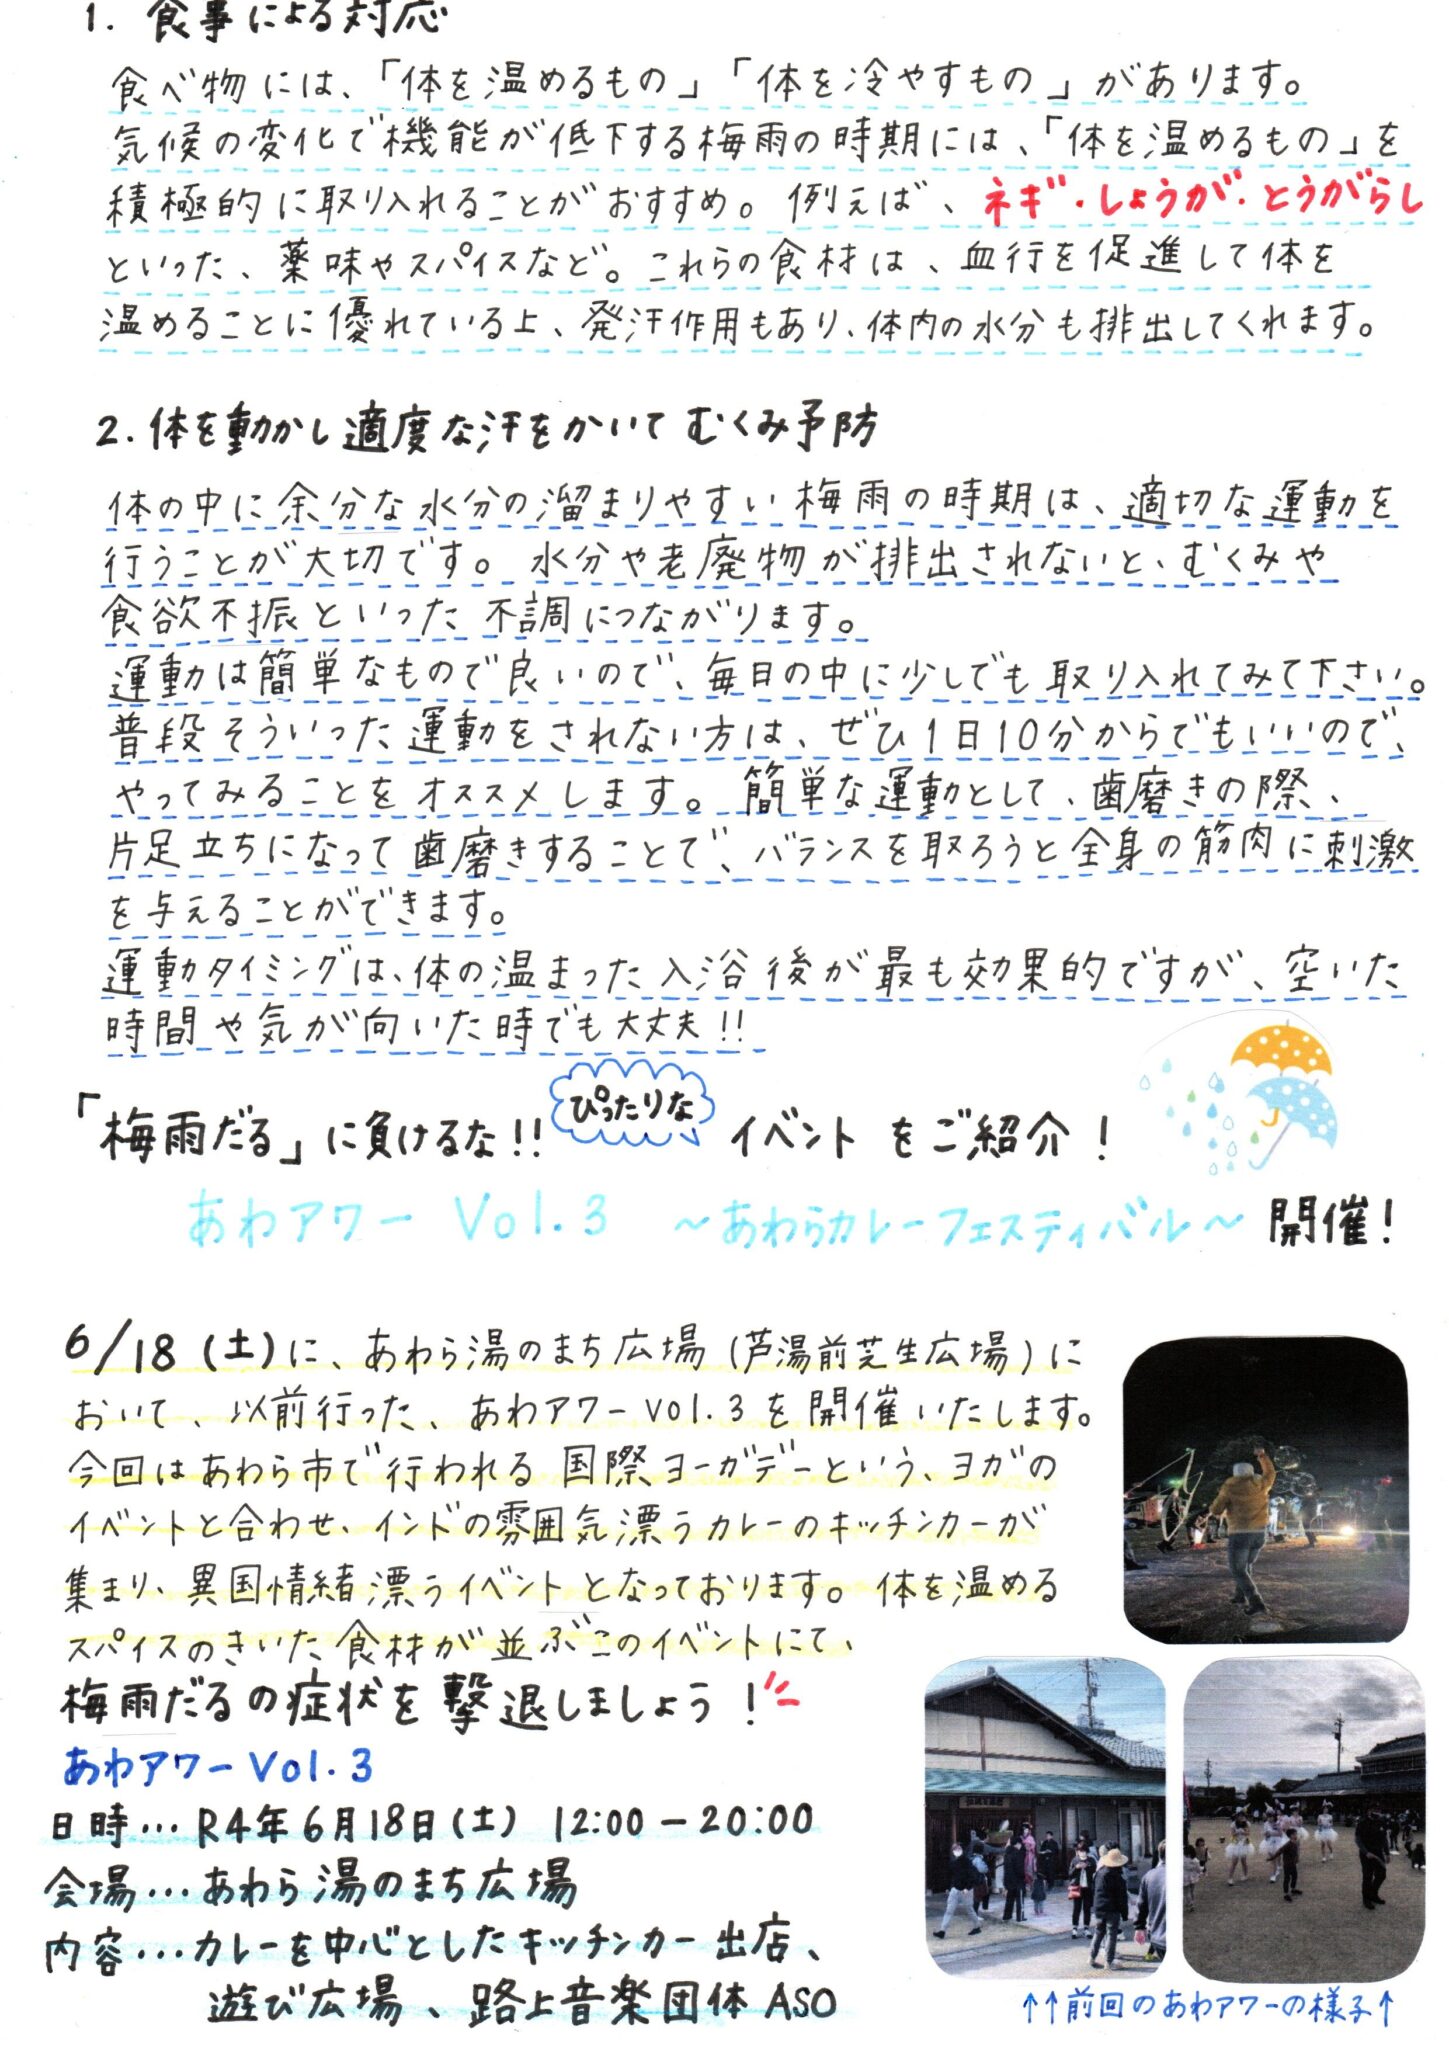 1. 食事による対応
食べ物には、「体を温めるもの」「体を冷やすもの」があります。
気候の変化で機能が低下する梅雨の時期には、「体を温めるもの」を
積極的に取り入れることがおすすめ。例えば、ネギ・しょうが・とうがらし
といった、薬味やスパイスなど。これらの食材は、血行を促進して体を
温めることに優れている上、発汗作用もあり、体内の水分も排出してくれます。
2. 体を動かし適度な汗をかいてむくみ予防
体の中に余分な水分の溜まりやすい梅雨の時期は、適切な運動を
行うことが大切です。水分や老廃物が排出されないと、むくみや
食欲不振といった不調につながります。
運動は簡単なもので良いので、毎日の中に少しでも取り入れてみて下さい。
普段そういった運動をされない方は、ぜひ1日10分からでもいいので、
やってみることをオススメします。簡単な運動として、歯磨きの際、
片足立ちになって歯磨きすることで、バランスを取ろうと全身の筋肉に刺激
を与えることができます。
運動タイミングは、体の温まった入浴後が最も効果的ですが、空いた
時間や気が向いた時でも大丈夫!!
「梅雨だる」に負けるな!! ぴったりな イベントをご紹介!
あわアワー Vol.3 〜あわらカレーフェスティバル〜 開催!
6/18(土)に、あわら湯のまち広場(芦湯前芝生広場)に
おいて、以前行った、あわアワーvol.3を開催いたします。
今回はあわら市で行われる国際ヨーガデーという、ヨガの
イベントと合わせ、インドの雰囲気漂うカレーのキッチンカーが
集まり、異国情緒漂うイベントとなっております。体を温める
スパイスのきいた食材が並ぶこのイベントにて、
梅雨だるの症状を撃退しましょう!
あわアワーVol.3
日時…R4年6月18日(土) 12:00-20:00
会場…あわら湯のまち広場
内容…カレーを中心としたキッチンカー出店、
遊び広場、路上音楽団体ASO
↑↑前回のあわアワーの様子↑